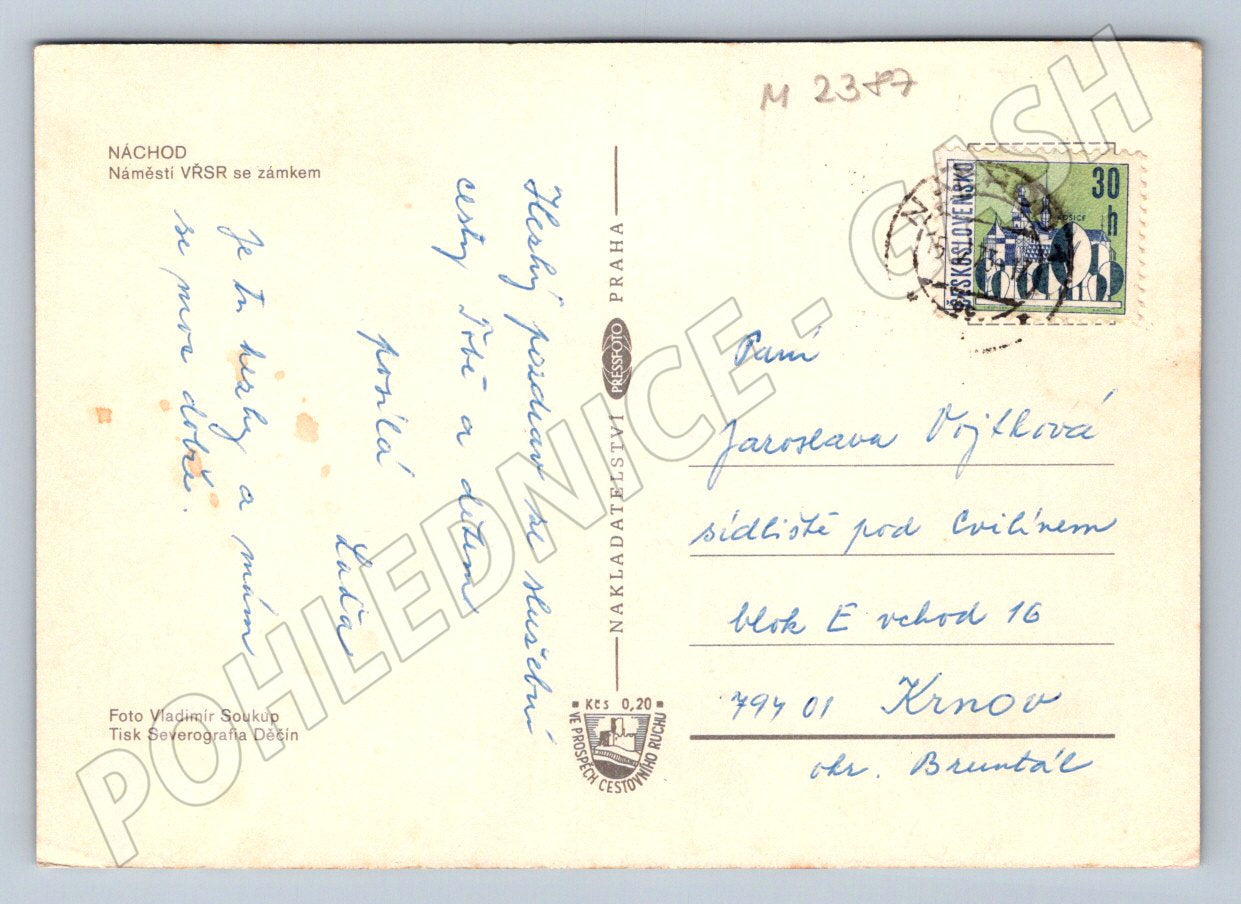 M 2387
NÁCHOD
Náměstí VŘSR se zámkem
Hezký pozdrav ze služební
cesty Tobě a dětem
posílá
Laďa
Je tu hezky a mám
se moc dobře.
Foto Vladimír Soukup
Tisk Severografia Děčín
NAKLADATELSTVÍ PRESSFOTO PRAHA
Kčs 0,20
VE PROSPĚCH CESTOVNÍHO RUCHU
ČESKOSLOVENSKO
30 h
KOŠICE
Paní
Jaroslava Vojtková
sídliště pod Cvilínem
blok E vchod 16
794 01 Krnov
okr. Bruntál
POHLEDNICE - CASH